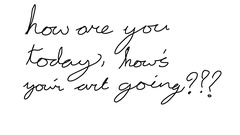 how are you
today, how's
your art going???